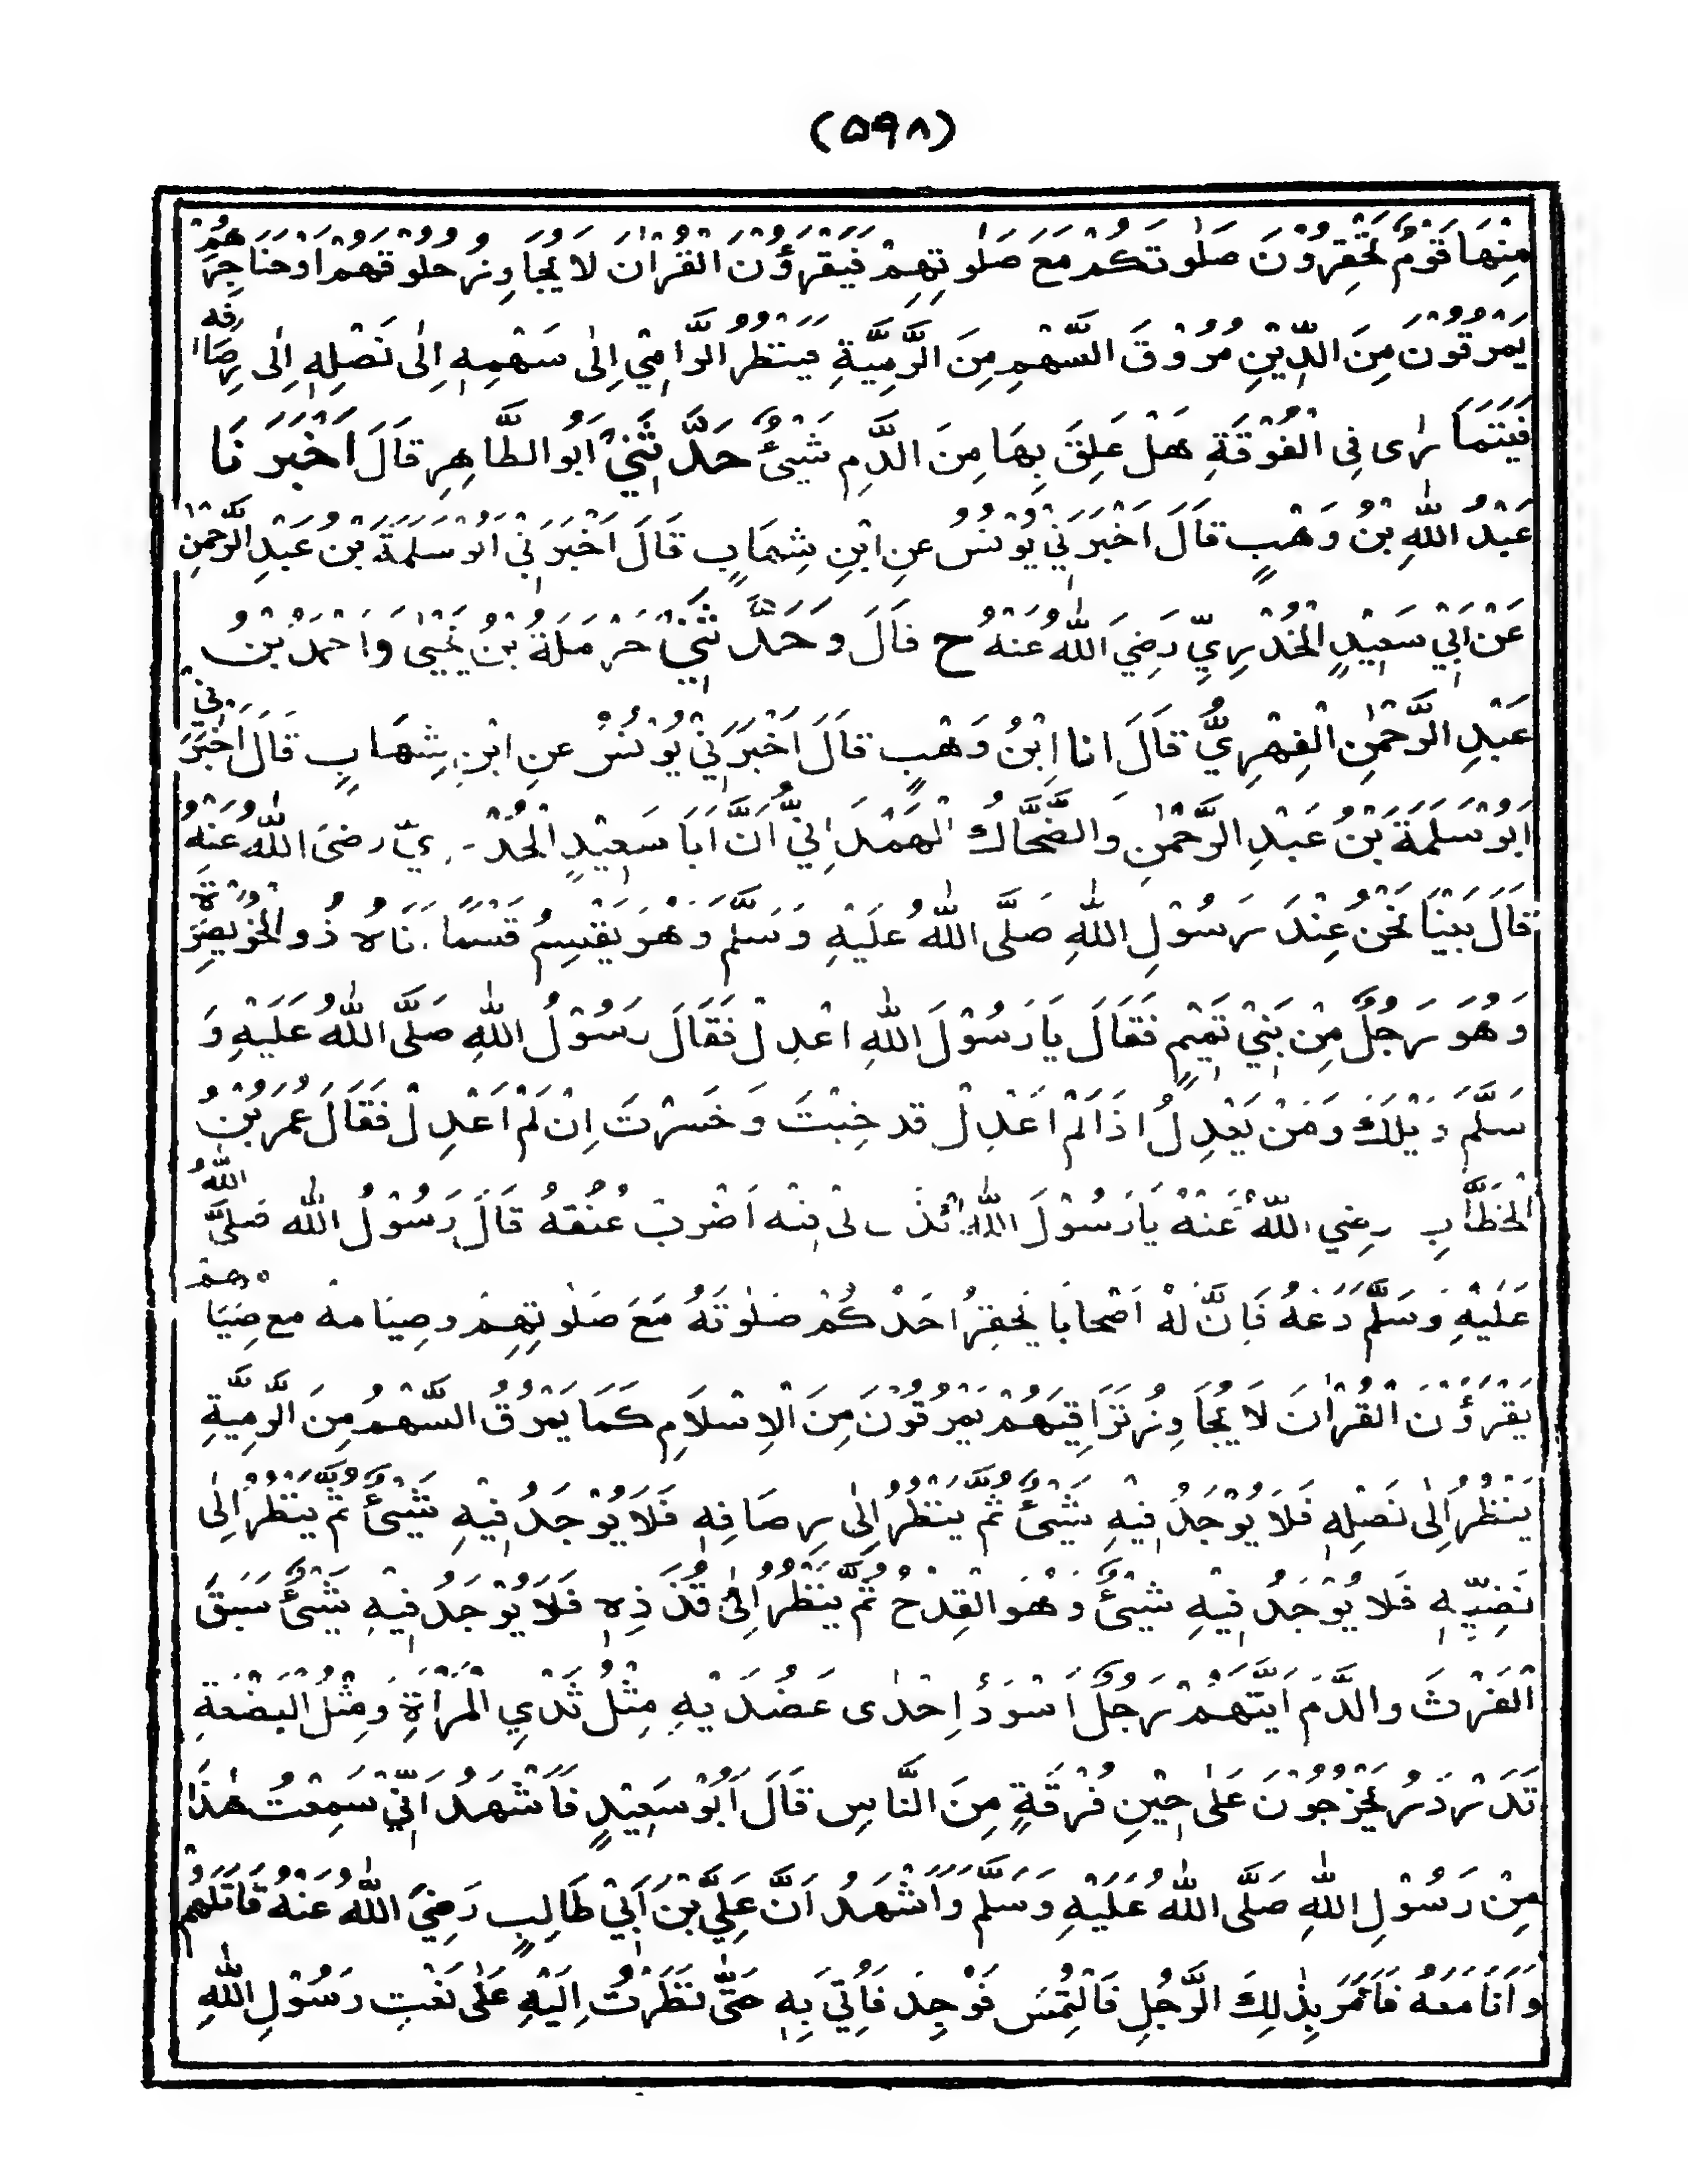 (۵۹۸)
مِنْهَا قَوْمٌ تَحْقِرُوْنَ صَلٰوتَكُمْ مَعَ صَلٰوتِهِمْ فَيَقْرَؤُنَ الْقُرْاٰنَ لَا يُجَاوِزُ حُلُوْقَهُمْ اَوْ حَنَاجِرَهُمْ
يَمْرُقُوْنَ مِنَ الدِّيْنِ مُرُوْقَ السَّهْمِ مِنَ الرَّمِيَّةِ فَيَنْظُرُ الرَّامِيْ اِلٰى سَهْمِهٖ اِلٰى نَصْلِهٖ اِلٰى رِصَافِهٖ
فَيَتَمَارٰى فِى الْفُوْقَةِ هَلْ عَلِقَ بِهَا مِنَ الدَّمِ شَيْئٌ حَدَّثَنِيْ اَبُو الطَّاهِرِ قَالَ اَخْبَرَنَا
عَبْدُ اللّٰهِ بْنُ وَهْبٍ قَالَ اَخْبَرَنِيْ يُوْنُسُ عَنِ ابْنِ شِهَابٍ قَالَ اَخْبَرَنِيْ اَبُوْ سَلَمَةَ بْنُ عَبْدِ الرَّحْمٰنِ
عَنْ اَبِيْ سَعِيْدٍ الْخُدْرِيِّ رَضِيَ اللّٰهُ عَنْهُ ح قَالَ وَحَدَّثَنِيْ حَرْمَلَةُ بْنُ يَحْيٰى وَاَحْمَدُ بْنُ
عَبْدِ الرَّحْمٰنِ الْفِهْرِيُّ قَالَ اَنَا ابْنُ وَهْبٍ قَالَ اَخْبَرَنِيْ يُوْنُسُ عَنِ ابْنِ شِهَابٍ قَالَ اَخْبَرَنِيْ
اَبُوْ سَلَمَةَ بْنُ عَبْدِ الرَّحْمٰنِ وَالضَّحَّاكُ الْهَمْدَانِيُّ اَنَّ اَبَا سَعِيْدٍ الْخُدْرِيَّ رَضِىَ اللّٰهُ عَنْهُ
قَالَ بَيْنَا نَحْنُ عِنْدَ رَسُوْلِ اللّٰهِ صَلَّى اللّٰهُ عَلَيْهِ وَسَلَّمَ وَهُوَ يَقْسِمُ قَسْمًا اَتَاهُ ذُو الْخُوَيْصِرَةِ
وَهُوَ رَجُلٌ مِّنْ بَنِيْ تَمِيْمٍ فَقَالَ يَا رَسُوْلَ اللّٰهِ اعْدِلْ فَقَالَ رَسُوْلُ اللّٰهِ صَلَّى اللّٰهُ عَلَيْهِ وَ
سَلَّمَ وَيْلَكَ وَمَنْ يَعْدِلُ اِذَا لَمْ اَعْدِلْ قَدْ خِبْتَ وَخَسِرْتَ اِنْ لَمْ اَعْدِلْ فَقَالَ عُمَرُ بْنُ
الْخَطَّابِ رَضِيَ اللّٰهُ عَنْهُ يَا رَسُوْلَ اللّٰهِ ائْذَنْ لِىْ فِيْهِ اَضْرِبْ عُنُقَهُ قَالَ رَسُوْلُ اللّٰهِ صَلَّى اللّٰهُ
عَلَيْهِ وَسَلَّمَ دَعْهُ فَاِنَّ لَهٗ اَصْحَابًا يَحْقِرُ اَحَدُكُمْ صَلٰوتَهُ مَعَ صَلٰوتِهِمْ وَصِيَامَهُ مَعَ صِيَامِهِمْ
يَقْرَؤُنَ الْقُرْاٰنَ لَا يُجَاوِزُ تَرَاقِيَهُمْ يَمْرُقُوْنَ مِنَ الْاِسْلَامِ كَمَا يَمْرُقُ السَّهْمُ مِنَ الرَّمِيَّةِ
يَنْظُرُ اِلٰى نَصْلِهٖ فَلَا يُوْجَدُ فِيْهِ شَيْئٌ ثُمَّ يَنْظُرُ اِلٰى رِصَافِهٖ فَلَا يُوْجَدُ فِيْهِ شَيْئٌ ثُمَّ يَنْظُرُ اِلٰى
نَضِيِّهٖ فَلَا يُوْجَدُ فِيْهِ شَيْئٌ وَهُوَ الْقِدْحُ ثُمَّ يَنْظُرُ اِلٰى قُذَذِهٖ فَلَا يُوْجَدُ فِيْهِ شَيْئٌ سَبَقَ
الْفَرْثَ وَالدَّمَ اٰيَتُهُمْ رَجُلٌ اَسْوَدُ اِحْدٰى عَضُدَيْهِ مِثْلُ ثَدْيِ الْمَرْاَةِ وَمِثْلُ الْبَضْعَةِ
تَدَرْدَرُ يَخْرُجُوْنَ عَلٰى حِيْنِ فُرْقَةٍ مِنَ النَّاسِ قَالَ اَبُوْ سَعِيْدٍ فَاَشْهَدُ اَنِّيْ سَمِعْتُ هٰذَا
مِنْ رَسُوْلِ اللّٰهِ صَلَّى اللّٰهُ عَلَيْهِ وَسَلَّمَ وَاَشْهَدُ اَنَّ عَلِيَّ بْنَ اَبِيْ طَالِبٍ رَضِيَ اللّٰهُ عَنْهُ قَاتَلَهُمْ
وَاَنَا مَعَهُ فَاَمَرَ بِذٰلِكَ الرَّجُلِ فَالْتُمِسَ فَوُجِدَ فَاُتِيَ بِهٖ حَتّٰى نَظَرْتُ اِلَيْهِ عَلٰى نَعْتِ رَسُوْلِ اللّٰهِ